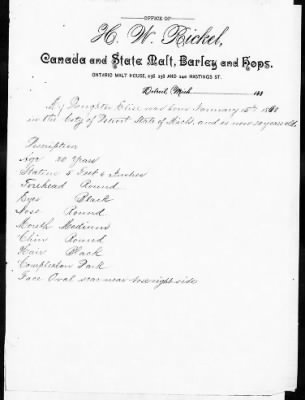 OFFICE OF
H. W. Rickel,
Canada and State Malt, Barley and Hops.
ONTARIO MALT HOUSE, 236 238 AND 240 HASTINGS ST.
Detroit, Mich 188
My Daughter Elise was born January 15th 1868
in the City of Detroit State of Mich. and is now 20 years old.
Discription
Age 20 Years
Statue 5 Feet 6 Inches
Forehead Round
Eyes Black
Nose Round
Mouth Medium
Chin Round
Hair Black
Complexion Dark
Face Oval scar near nose right side